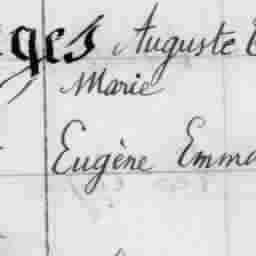 ges Auguste
Marie
Eugène Emma